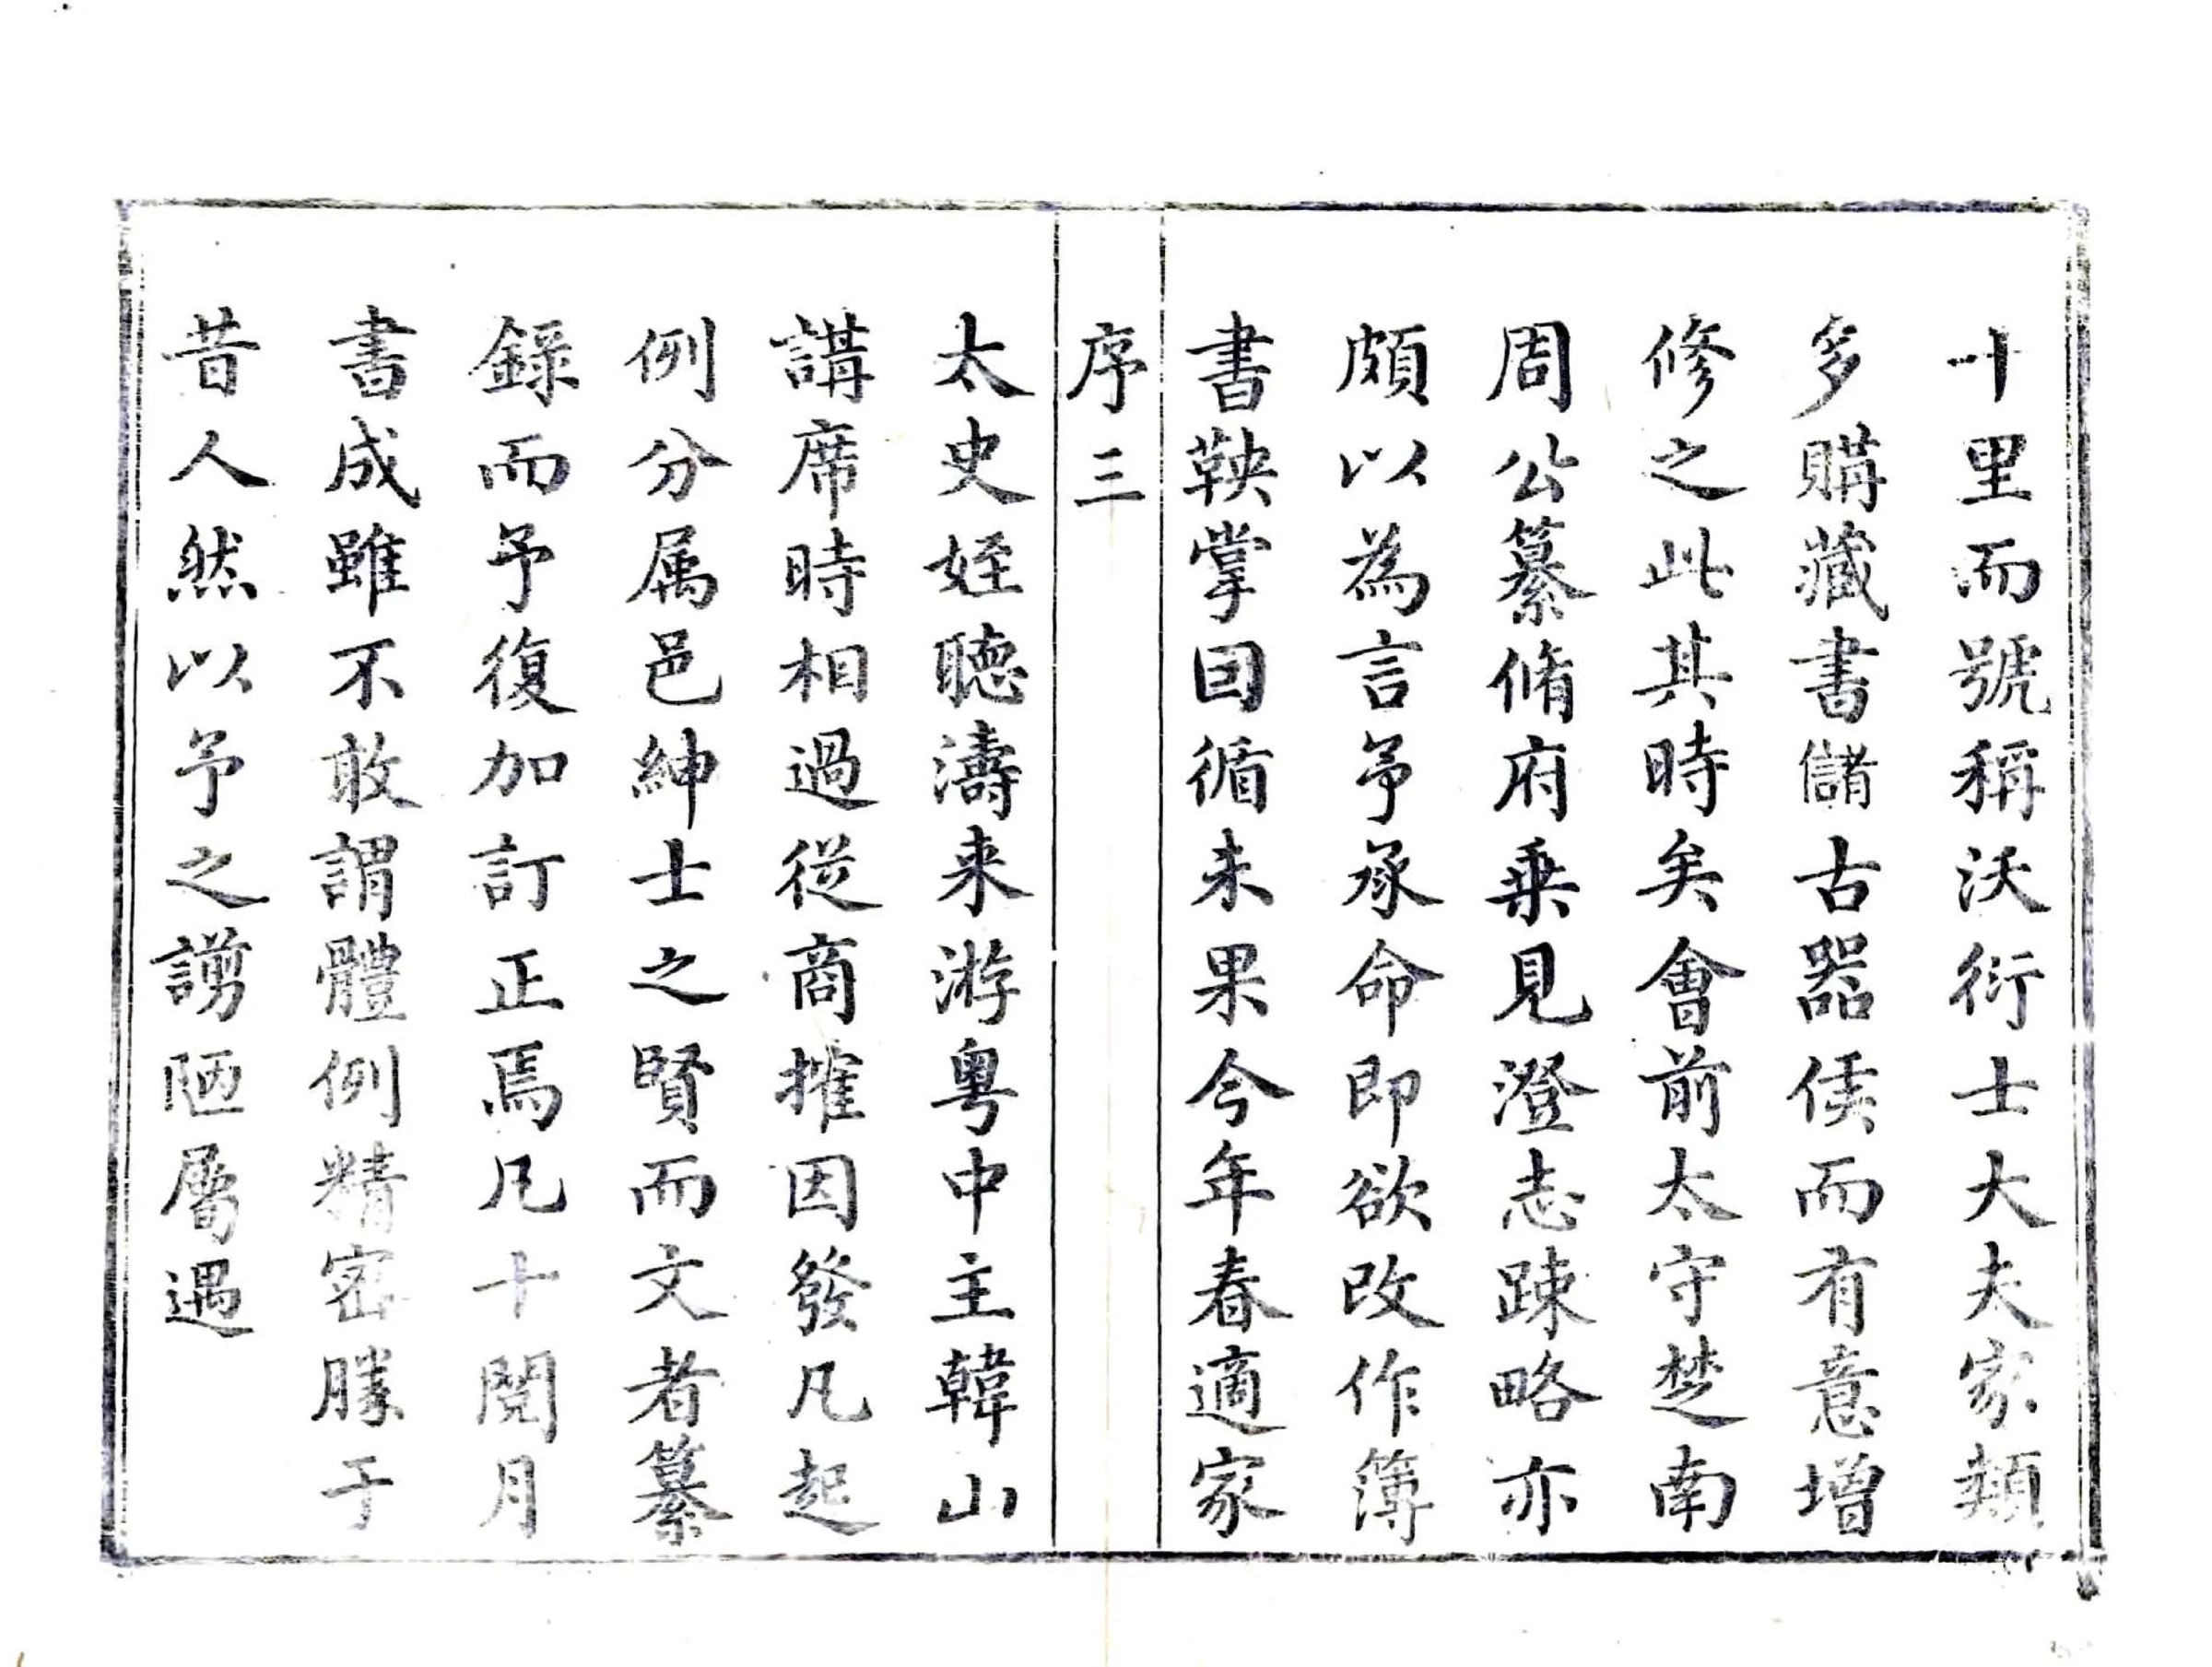 十里而號稱沃衍士大夫家類
多購藏書儲古器俟而有意增
修之此其時矣會前太守楚南
周公纂脩府乗見澄志踈略亦
頗以為言予承命即欲改作簿
書鞅掌囙循未果今年春適家
序三
太史姪聽濤来游粤中主韓山
講席時相過從商搉因發凡起
例分属邑紳士之賢而文者纂
録而予復加訂正焉凡十閱月
書成雖不敢謂體例精密勝于
昔人然以予之謭陋屬遇